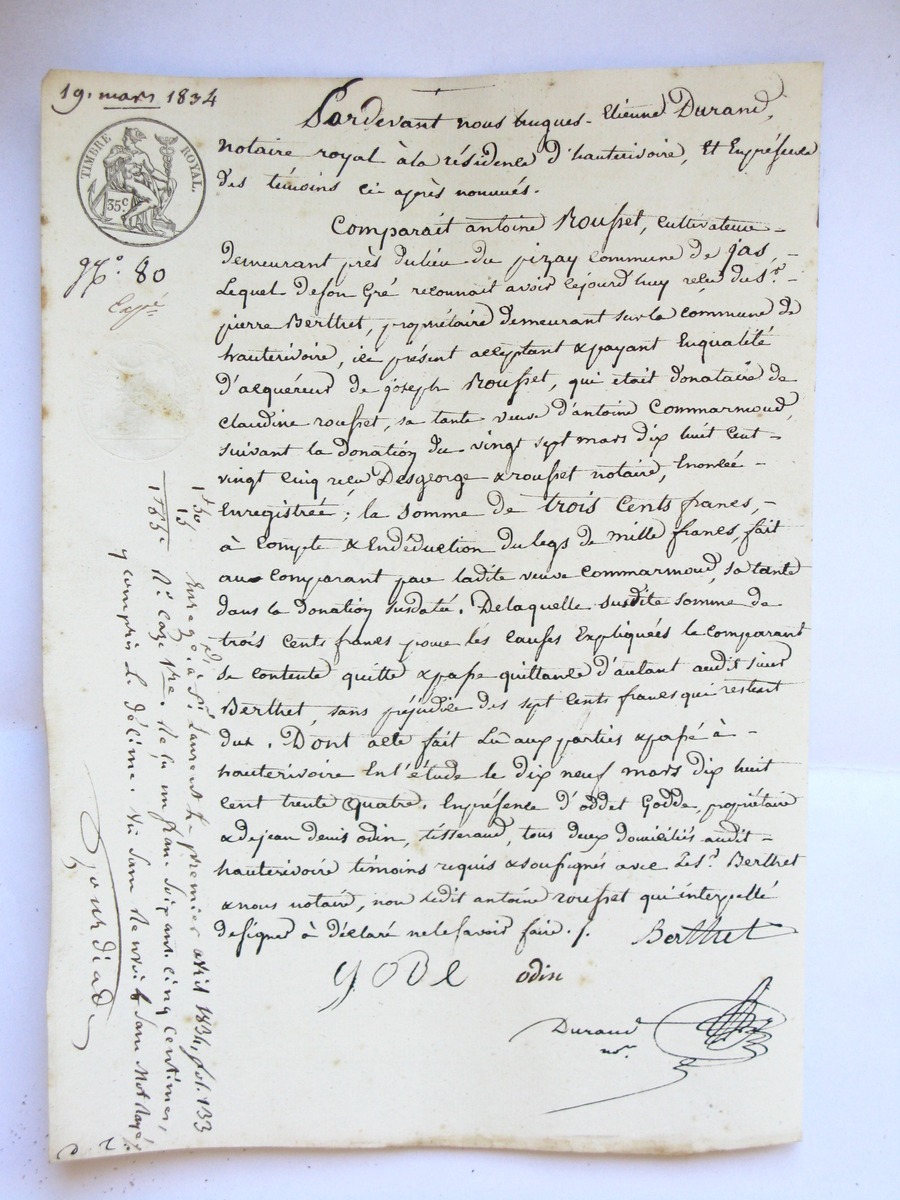 19. mars 1834
TIMBRE ROYAL.
35c.
N.o 80
Pardevant nous hugues-Etienne Durand,
notaire royal à la résidence d'hauterivoire, Et Enprésence
des témoins ci après nommés.
Comparait antoine Rousset, cultivateur
demeurant près dulieu du pizay commune de jas,
Lequel deson Gré reconnait avoir cejourd'huy reçu du Sr.
pierre Berthet, propriétaire demeurant sur la commune de
hauterivoire, ici présent acceptant & payant Enqualité
d'acquéreur de joseph Rousset, qui était donataire de
claudine rousset, sa tante veuve d'antoine Commarmond,
suivant la donation du vingt sept mars dix huit cent
vingt cinq reçu Desgeorge & rousset notaire, Enoncée
Enregistrée; la somme de trois cents francs,
à compte & Endéduction du legs de mille francs, fait
au comparant par ladite veuve commarmond, sa tante
dans la donation susdatée. Delaquelle susdite somme de
trois cents francs pour les causes Expliquées le comparant
se contente quitte & passe quittance d'autant audit sieur
Berthet, sans préjudice des sept cents francs qui restent
dus. Dont acte fait Lu aux parties & passé à
hauterivoire En l'étude le dix neuf mars dix huit
cent trente quatre. Enprésence d'oddet Godde, propriétaire
& dejean denis odin, tisserand, tous deux domiciliés audit
hauterivoire témoins requis & soussignés avec Le Sr. Berthet
& nous notaire, non ledit antoine rousset qui interpellé
designer à déclaré nelesavoir faire./.
Berthet
gode
odin
Durand
nre.
1f 50
15
1f 65c
Enreg. à St. Laurent le premier avril 1834, fol. 133
Rº. Case 1re. Reçu un franc soixante cinq centimes,
y compris le décime.